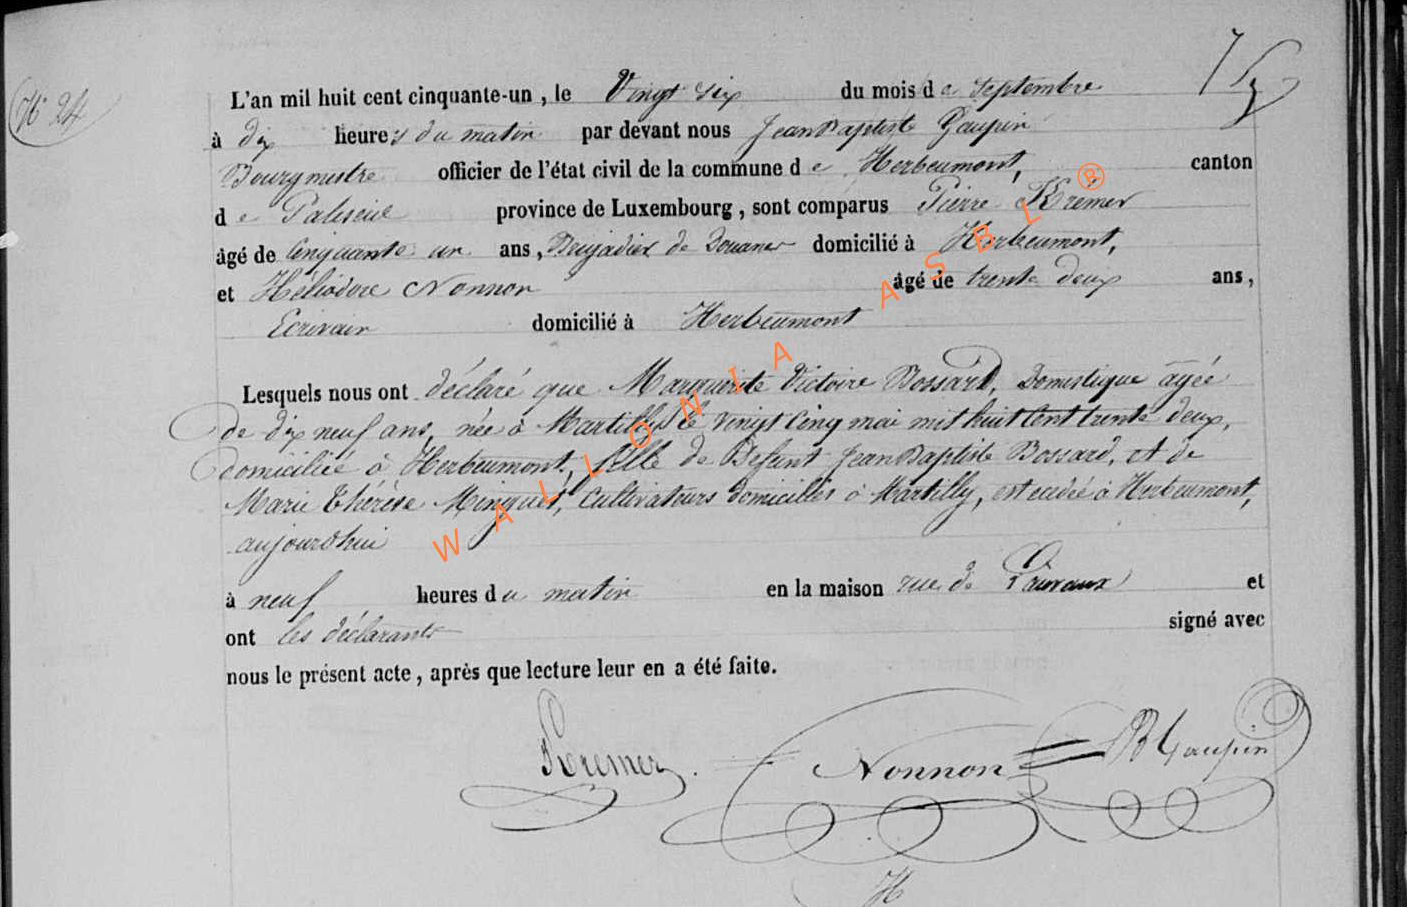 N° 24
L'an mil huit cent cinquante-un, le Vingt six du mois de Septembre
à dix heures du matin par devant nous Jean Baptiste Gaupin
Bourgmestre officier de l'état civil de la commune de Herbeumont, canton
de Paliseul province de Luxembourg, sont comparus Pierre Krémer
âgé de Cinquante un ans, Brigadier de Douanes domicilié à Herbeumont,
et Héliodore Nonnon âgé de trente deux ans,
Ecrivain domicilié à Herbeumont
Lesquels nous ont déclaré que Marguerite Victoire Bossard, Domestique agée
de dix neuf ans, née à Martilly le vingt Cinq mai mil huit Cent trente deux,
domiciliée à Herbeumont, fille de Defunt Jean Baptiste Bossard, et de
Marie Thérèse Minguet, Cultivateurs domiciliés à Martilly, est décédée à Herbeumont,
aujourdhui
à neuf heures du matin en la maison rue de et
ont les déclarants signé avec
nous le présent acte, après que lecture leur en a été faite.
Kremer. Nonnon JB Gaupin
WALLONIA ASBL ®